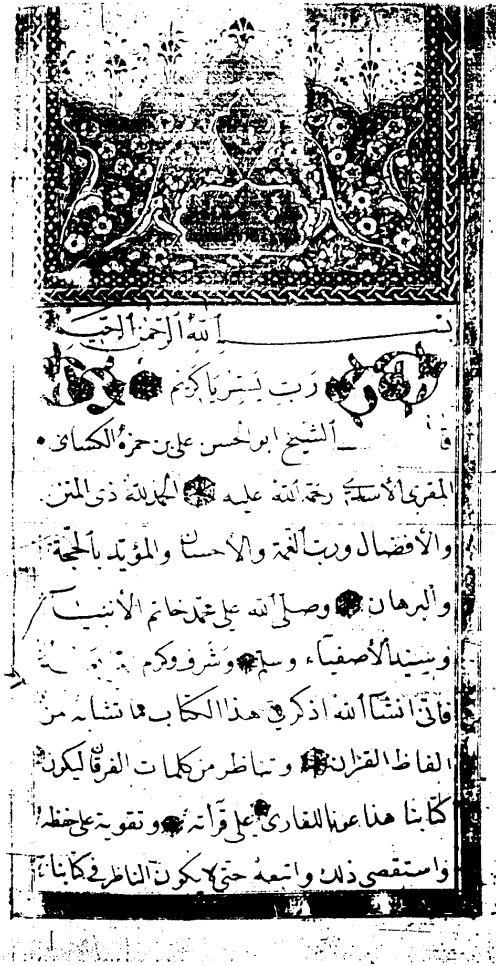 بسم الله الرحمن الرحيم
رب يسر يا كريم
قال الشيخ ابو الحسن علي بن حمزة الكسائي
المقرى الأسدي رحمة الله عليه الحمد لله ذى المنن
والأفضال ورب النعمة والاحسان والمؤيد بالحجة
والبرهان وصلى الله على محمد خاتم الأنبياء
وسيد الأصفياء وسلم وشرف وكرم
فانى انشآ الله اذكر في هذا الكتاب مما تشابه من
الفاظ القرآن وتناظر من كلمات الفرقان ليكون
كتابنا هذا عونا للقارى على قرآته وتقوية على حفظه
واستقصى ذلك واتبعه حتى لا يكون الناظر في كتابنا